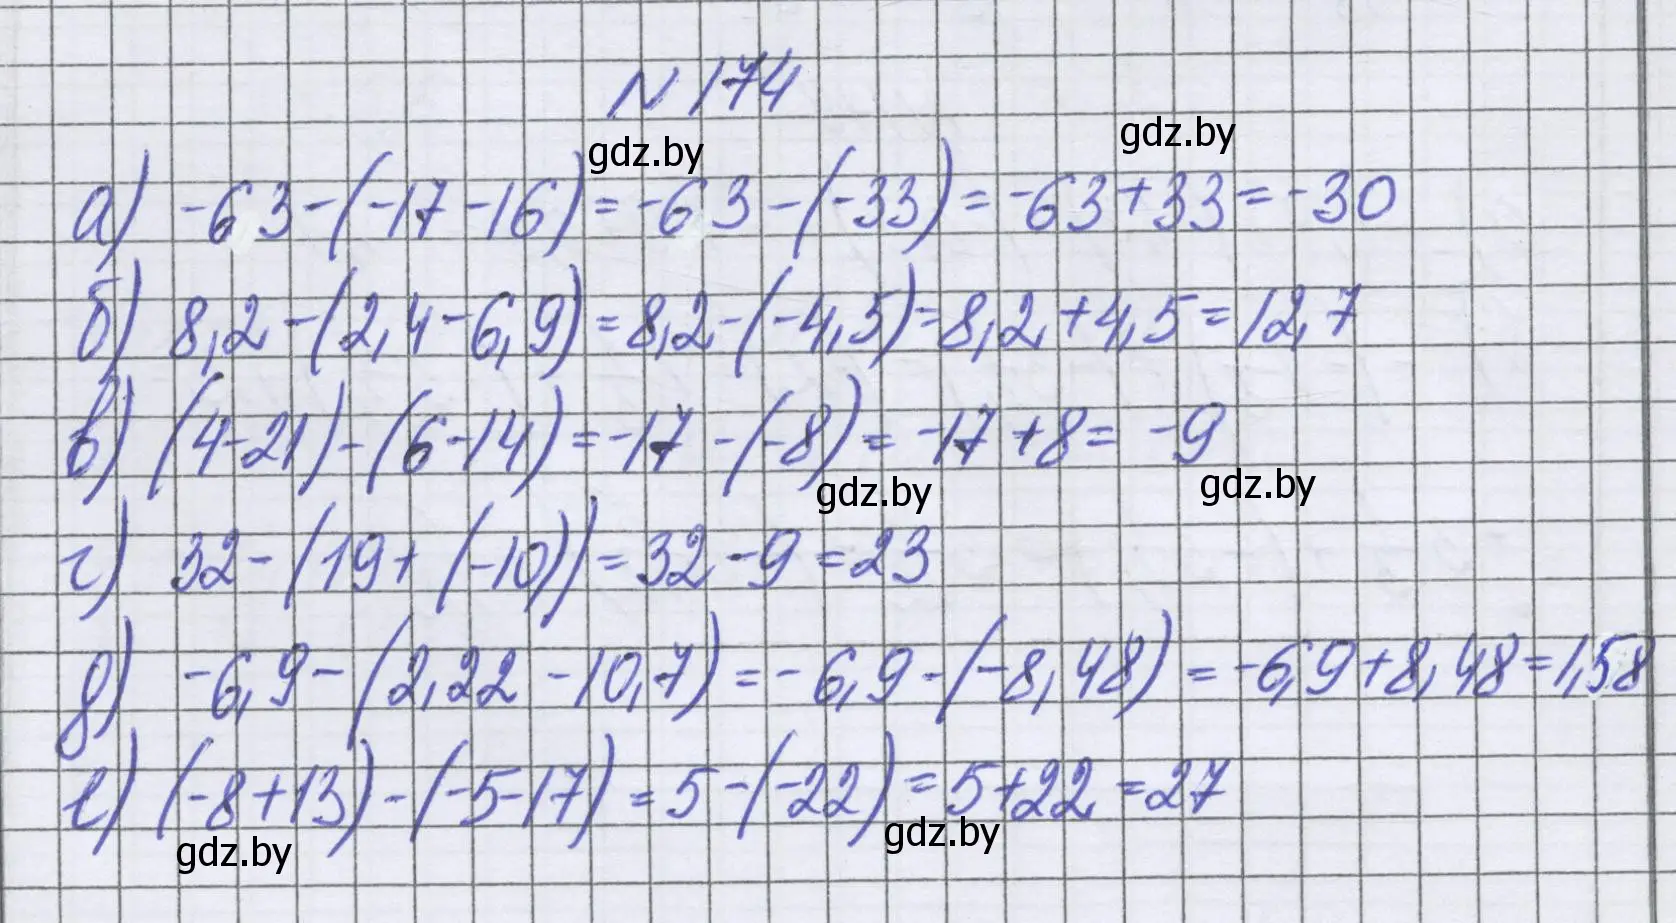 N 174
gdz.by
gdz.by
а) -63-(-17-16)=-63-(-33)=-63+33=-30
б) 8,2-(2,4-6,9)=8,2-(-4,5)=8,2+4,5=12,7
в) (4-21)-(6-14)=-17-(-8)=-17+8=-9
gdz.by
gdz.by
г) 32-(19+(-10))=32-9=23
д) -6,9-(2,22-10,7)=-6,9-(-8,48)=-6,9+8,48=1,58
е) (-8+13)-(-5-17)=5-(-22)=5+22=27
gdz.by
gdz.by